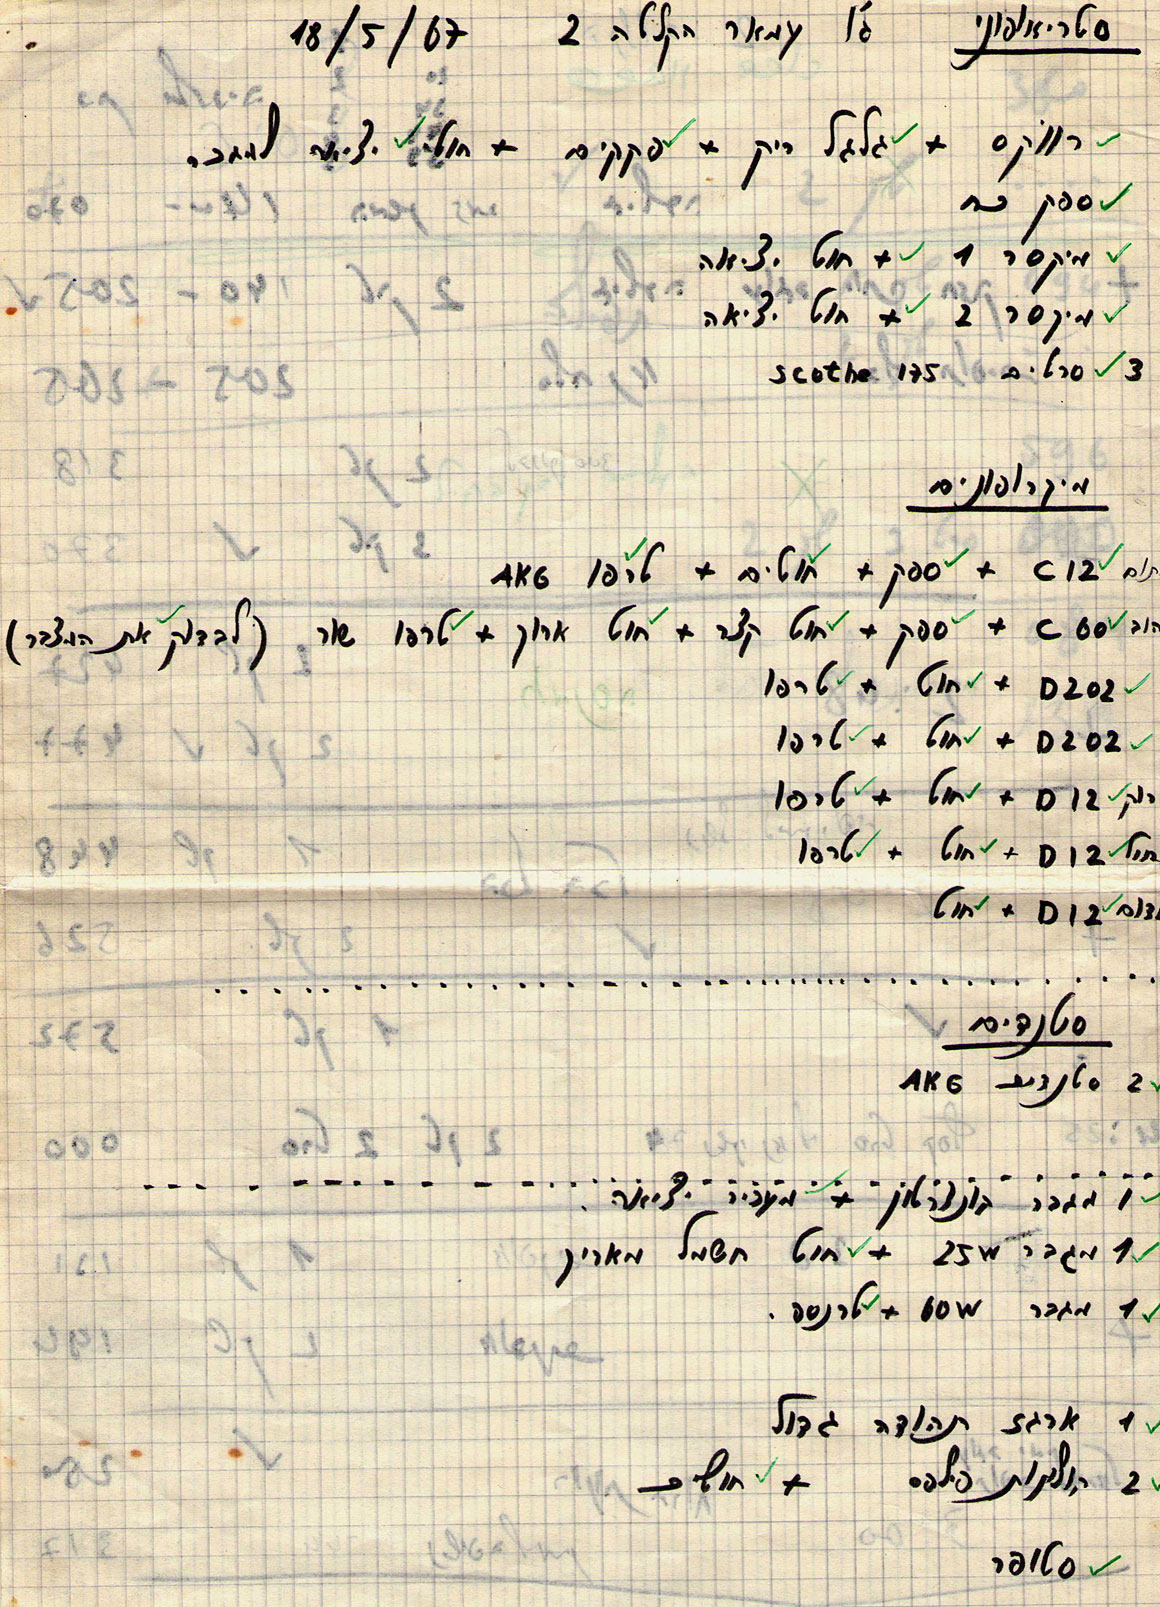 סטריאופוני ג'ו עמאר הקלטה 2 18/5/67
✓ רווקס + ✓גלגל ריק + ✓פקקים + חוטי ✓ יציאה למגבר
✓ ספק כח
✓ מיקסר 1 ✓+ חוט יציאה
✓ מיקסר 2 ✓+ חוט יציאה
3 ✓ סרטים scothe 175
מיקרופונים
C12 ✓ + ✓ספק + ✓חוטים + ✓טרפו AKG
C60 ✓ + ✓ספק + ✓חוט קצר + ✓חוט ארוך + ✓טרפו שור (לבדוק ✓את המצבר)
✓ D202 + ✓חוט + ✓טרפו
✓ D202 + ✓חוט + ✓טרפו
ירוק ✓ D12 + ✓חוט + ✓טרפו
כחול ✓ D12 + ✓חוט + ✓טרפו
אדום ✓ D12 + ✓חוט
סטנדים
✓ 2 סטנדים AKG
✓ 1 מגבר + ✓מעביר יציאה.
✓ 1 מגבר 25W + ✓חוט חשמל מאריך
✓ 1 מגבר 60W + ✓טרנספ.
✓ 1 ארגז תהודה גדול
✓ 2 פיליפס + ✓חוטים
✓ סטופר